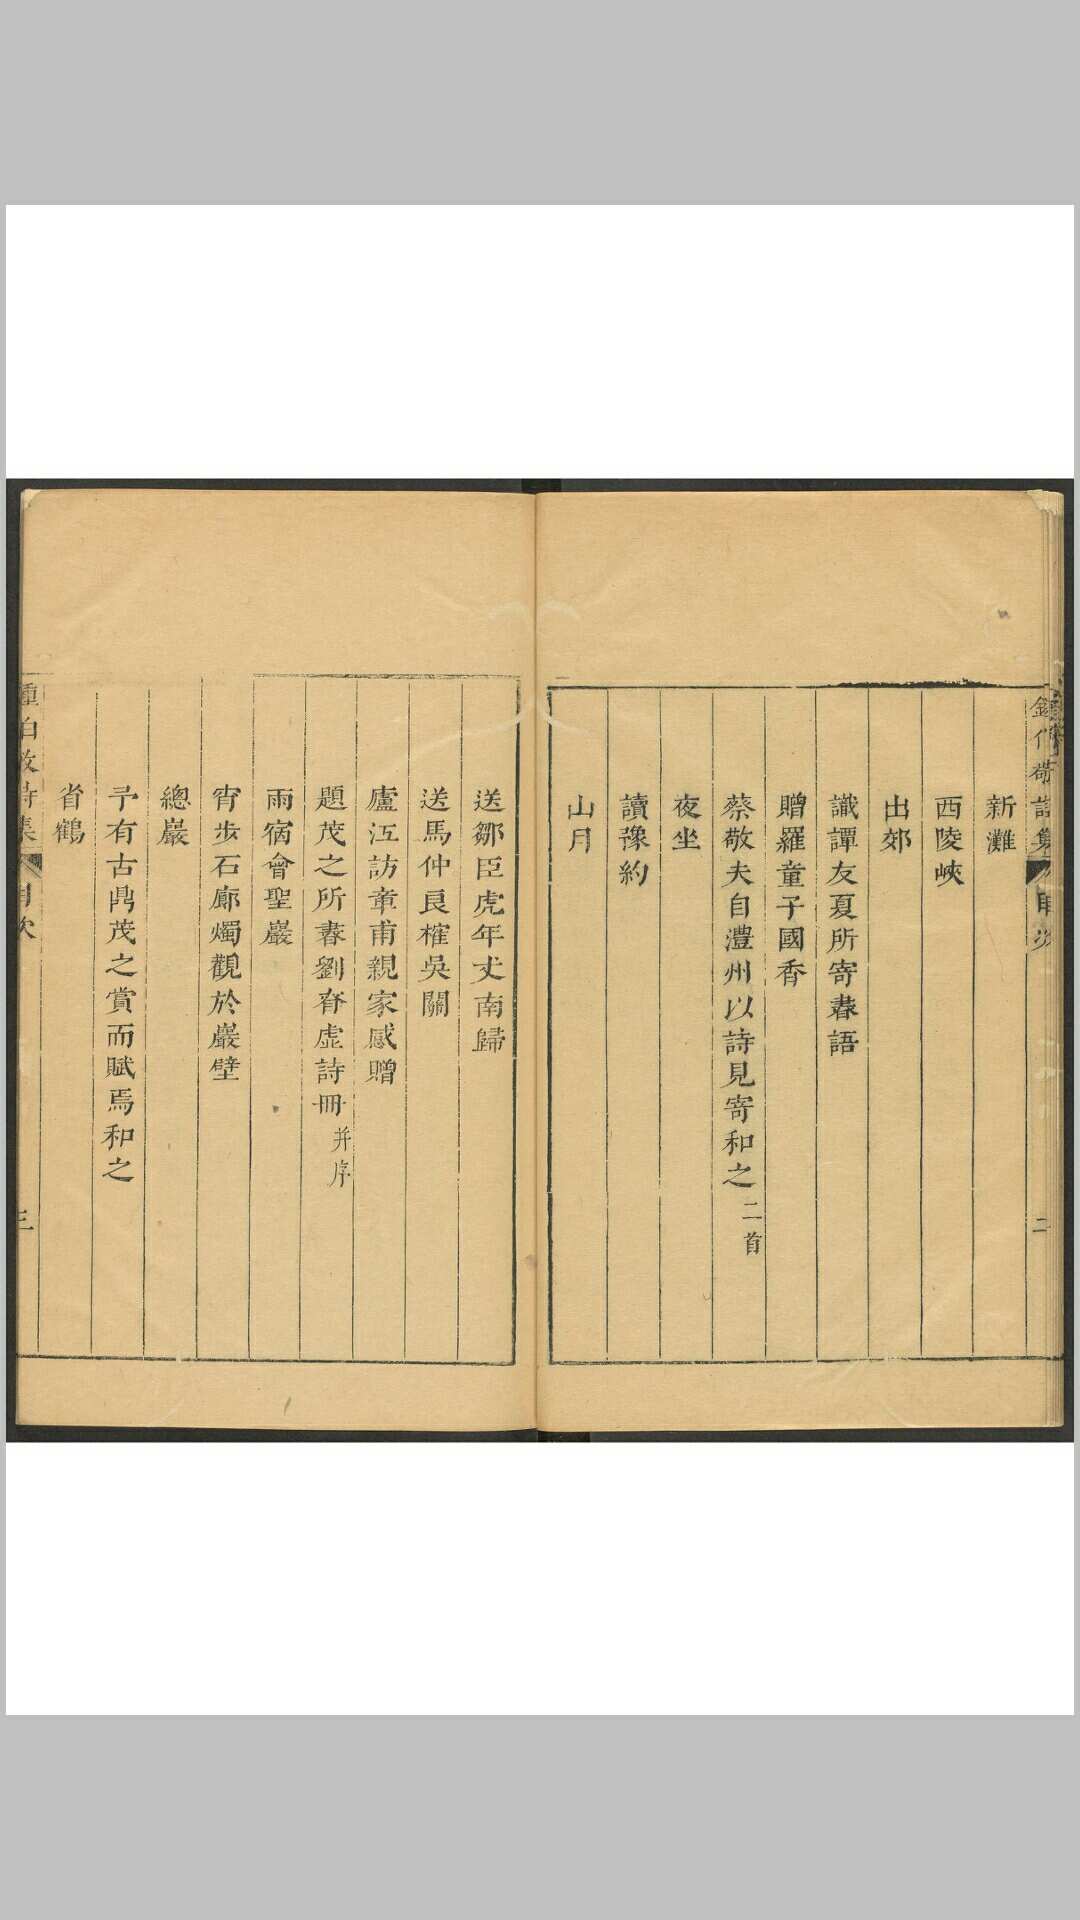 鍾伯敬詩集 目次 二
新灘
西陵峽
出郊
識譚友夏所寄書語
贈羅童子國香
蔡敬夫自澧州以詩見寄和之 二首
夜坐
讀豫約
山月
送鄒臣虎年丈南歸
送馬仲良榷吳關
廬江訪章甫親家感贈
題茂之所書劉眘虛詩冊 并序
雨宿會聖巖
宵步石廊燭觀於巖壁
總巖
予有古鼎茂之賞而賦焉和之
省鶴
鍾伯敬詩集 目次 三